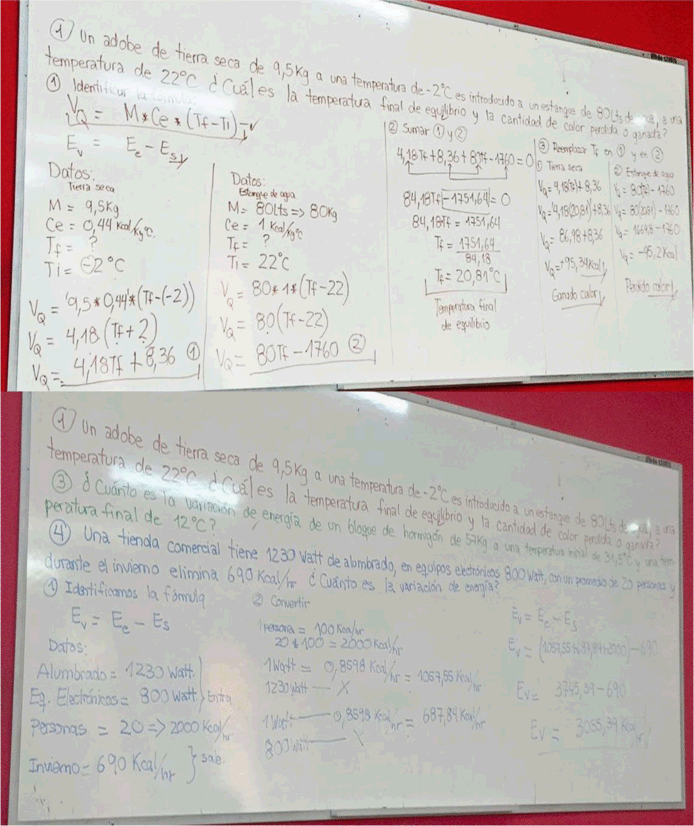 ① Un adobe de tierra seca de 9,5Kg a una temperatura de -2°C es introducido a un estanque de 80Lts de agua, a una
temperatura de 22°C ¿Cuál es la temperatura final de equilibrio y la cantidad de calor perdida o ganada?
① Identificar la fórmula
VQ = M * Ce * (Tf - Ti)
Ev = Ee - Es
Datos:
Tierra seca
M = 9,5Kg
Ce = 0,44 Kcal/Kg°C
Tf = ?
Ti = -2°C
VQ = 9,5 * 0,44 * (Tf-(-2))
VQ = 4,18 (Tf + 2)
VQ = 4,18Tf + 8,36 ①
Datos:
Estanque de agua
M = 80Lts => 80Kg
Ce = 1 Kcal/Kg°C
Tf = ?
Ti = 22°C
VQ = 80 * 1 * (Tf-22)
VQ = 80 (Tf-22)
VQ = 80Tf - 1760 ②
② Sumar ① y ②
4,18Tf + 8,36 + 80Tf - 1760 = 0
84,18Tf - 1751,64 = 0
84,18Tf = 1751,64
Tf = 1751,64 / 84,18
Tf = 20,81°C
Temperatura final
de equilibrio
③ Reemplazar Tf en ① y en ②
① Tierra seca
VQ = 4,18(Tf) + 8,36
VQ = 4,18(20,81) + 8,36
VQ = 86,98 + 8,36
VQ = +95,34Kcal
Ganado calor
② Estanque de agua
VQ = 80(Tf) - 1760
VQ = 80(20,81) - 1760
VQ = 1664,8 - 1760
VQ = -95,2 Kcal
Perdido calor
① Un adobe de tierra seca de 9,5Kg a una temperatura de -2°C es introducido a un estanque de 80Lts de agua, a una
temperatura de 22°C ¿Cuál es la temperatura final de equilibrio y la cantidad de calor perdida o ganada?
③ ¿Cuánto es la variación de energía de un bloque de hormigón de 57Kg a una temperatura inicial de 31,5°C y una tem-
peratura final de 12°C?
④ Una tienda comercial tiene 1230 Watt de alumbrado, en equipos electrónicos 800 Watt, con un promedio de 20 personas y
durante el invierno elimina 690 Kcal/hr ¿Cuánto es la variación de energía?
① Identificamos la fórmula
Ev = Ee - Es
Datos:
Alumbrado = 1230 Watt
Eq. Electrónicos = 800 Watt } Entra
Personas = 20 => 2000 Kcal/hr
Invierno = 690 Kcal/hr } Sale
② Convertir
1 Persona = 100 Kcal/hr
20 * 100 = 2000 Kcal/hr
1 Watt = 0,8598 Kcal/hr = 1057,55 Kcal/hr
1230 Watt — X
1 Watt — 0,8598 Kcal/hr = 687,84 Kcal/hr
800 Watt — X
Ev = Ee - Es
Ev = (1057,55 + 687,84 + 2000) - 690
Ev = 3745,39 - 690
Ev = 3055,39 Kcal/hr